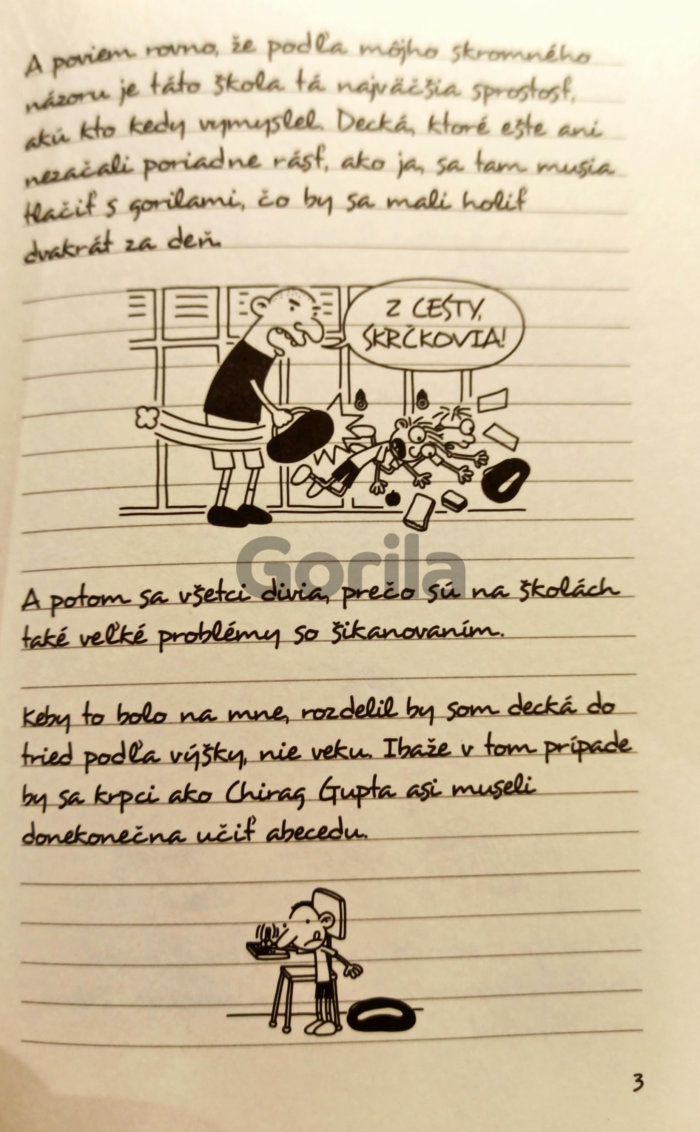 A poviem rovno, že podľa môjho skromného
názoru je táto škola tá najväčšia sprostosť,
akú kto kedy vymyslel. Decká, ktoré ešte ani
nezačali poriadne rásť, ako ja, sa tam musia
tlačiť s gorilami, čo by sa mali holiť
dvakrát za deň.
Z CESTY,
ŠKRČKOVIA!
Gorila
A potom sa všetci divia, prečo sú na školách
také veľké problémy so šikanovaním.
Keby to bolo na mne, rozdelil by som decká do
tried podľa výšky, nie veku. Ibaže v tom prípade
by sa krpci ako Chirag Gupta asi museli
donekonečna učiť abecedu.
3